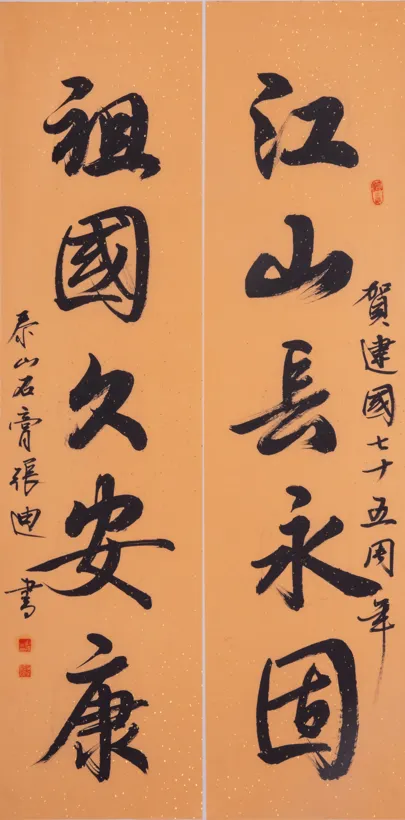 江山長永固
賀建國七十五周年
祖國久安康
泰山石膏張迪書